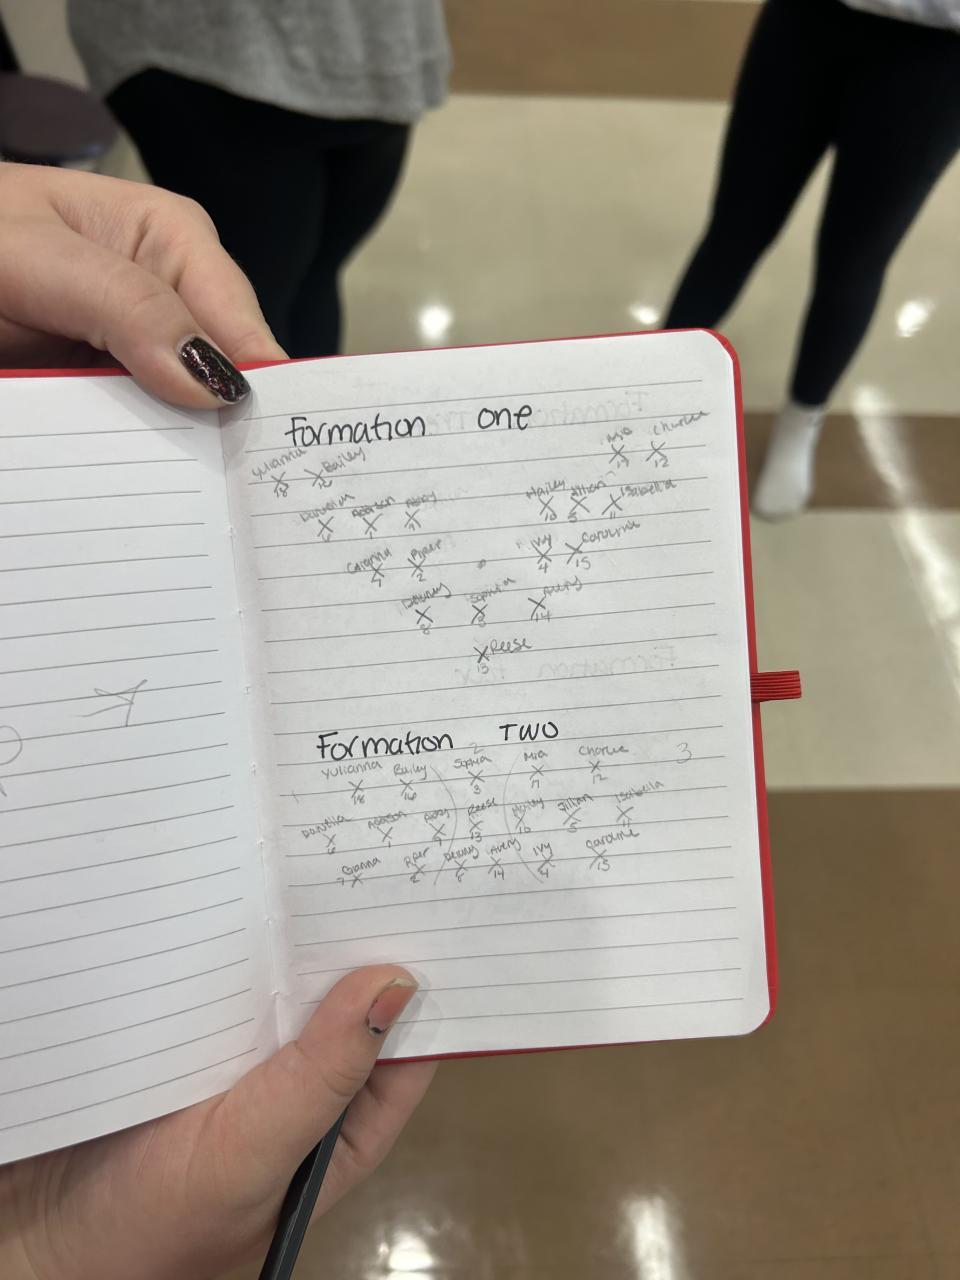 Formation one
Yulianna Bailey Mia Charlie
18 16 17 12
Daniella Addison Abby Hailey Jillian Isabella
6 1 9 10 5 11
Gianna Piper Ivy Caroline
7 2 4 15
Delaney Sophia Avery
8 3 14
Reese
13
Formation TWO
2 3
Yulianna Bailey Sophia Mia Charlie
18 16 3 17 12
Daniella Addison Abby Reese Hailey Jillian Isabella
6 1 9 13 10 5 11
Gianna Piper Delaney Avery Ivy Caroline
7 2 8 14 4 15